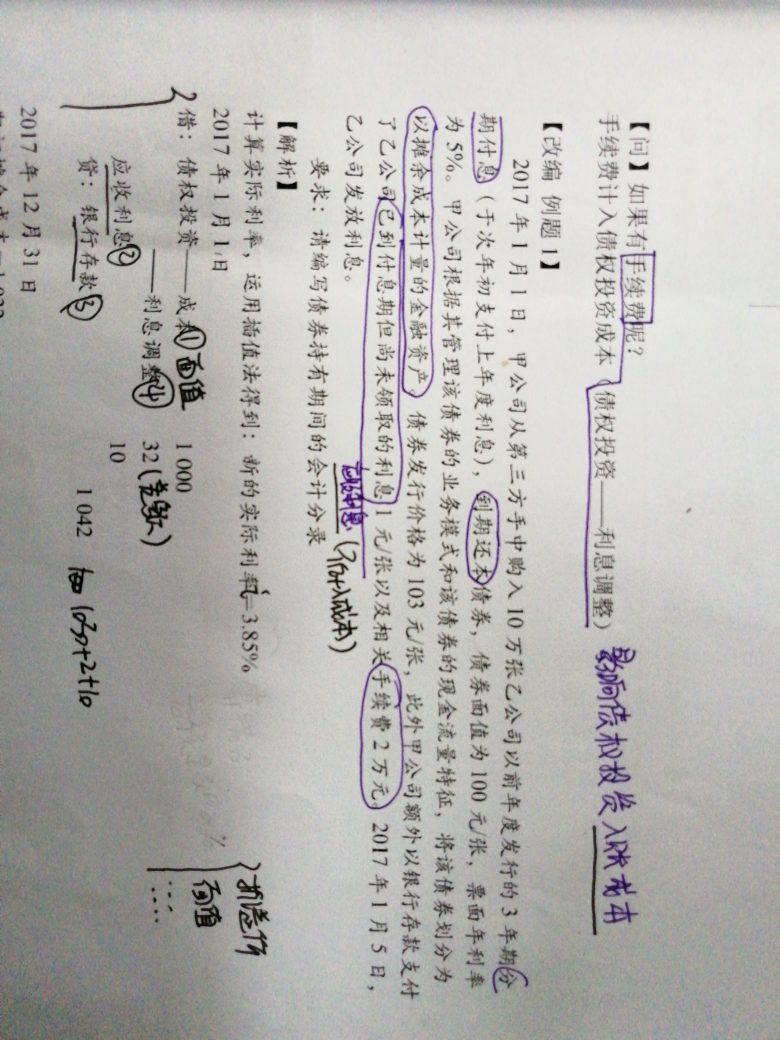 【问】如果有手续费呢？
手续费计入债权投资成本（债权投资——利息调整） 影响债权投资入账成本
【改编 例题1】
2017年1月1日，甲公司从第三方手中购入10万张乙公司以前年度发行的3年期分
期付息（于次年初支付上年度利息），到期还本债券，债券面值为100元/张，票面年利率
为5%。甲公司根据其管理该债券的业务模式和该债券的现金流量特征，将该债券划分为
以摊余成本计量的金融资产。债券发行价格为103元/张，此外甲公司额外以银行存款支付
了乙公司已到付息期但尚未领取的利息1元/张以及相关手续费2万元。2017年1月5日，
乙公司发放利息。
应收利息（不计入成本）
要求：请编写债券持有期间的会计分录
【解析】
计算实际利率，运用插值法得到：新的实际利率=3.85%
2017年1月1日
借：债权投资——成本① 面值 1 000
——利息调整④ 32（差额）
应收利息② 10
贷：银行存款③ 1 042 1030+2+10
折溢价
面值
2017年12月31日